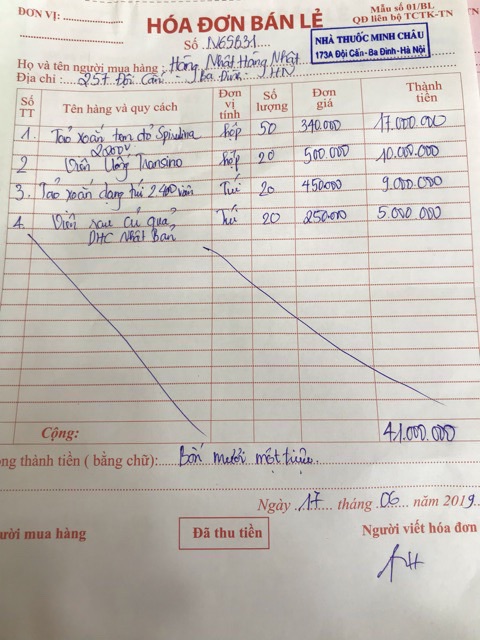 ĐƠN VỊ:
HÓA ĐƠN BÁN LẺ
Mẫu số 01/BL
QĐ liên bộ TCTK-TN
Số N65631
NHÀ THUỐC MINH CHÂU
173A Đội Cấn-Ba Đình-Hà Nội
Họ và tên người mua hàng: Hàng Nhật Hồng Nhật
Địa chỉ: 257 Đội Cấn - Ba Đình - HN
Số TT Tên hàng và quy cách Đơn vị tính Số lượng Đơn giá Thành tiền
1. Tảo xoắn tem đỏ Spirulina 2200v hộp 50 340.000 17.000.000
2 Viên Uống Transino hộp 20 500.000 10.000.000
3. Tảo xoắn dạng túi 2.400 viên Túi 20 450.000 9.000.000
4. Viên rau củ quả Túi 20 250.000 5.000.000
DHC Nhật Bản
Cộng: 41.000.000
ng thành tiền (bằng chữ): Bốn mươi một triệu.
Ngày 17 tháng 06 năm 2019
ười mua hàng
Đã thu tiền
Người viết hóa đơn